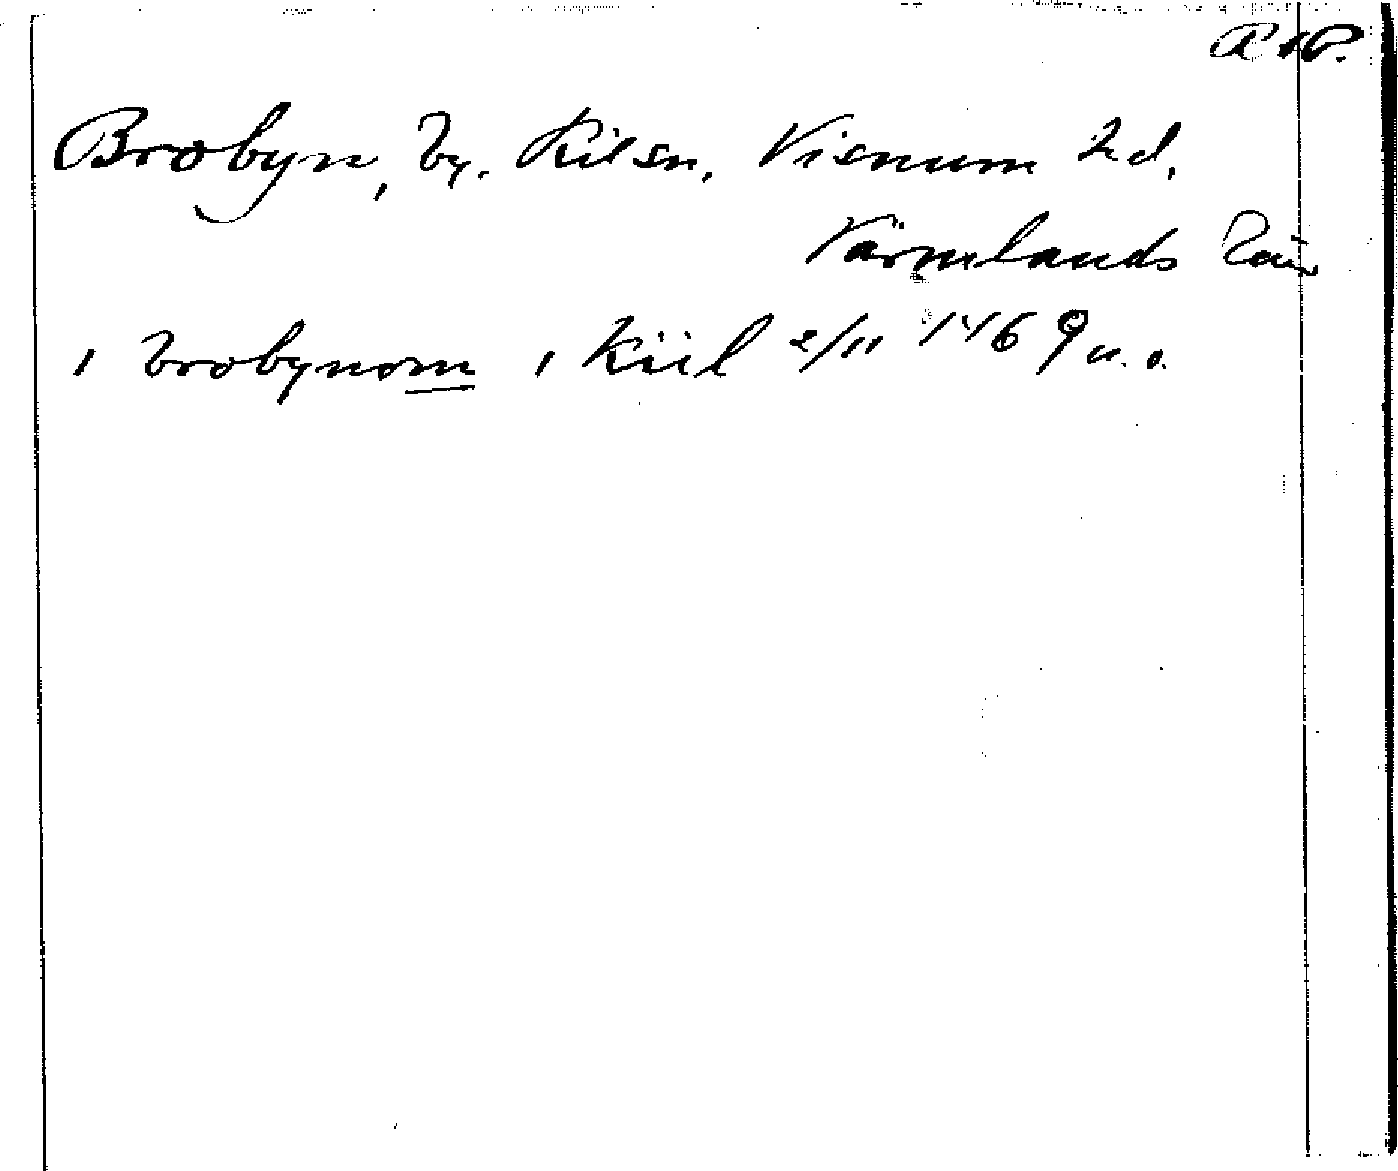 RAP.
Brobyn, by. Kil sn, Visnum hd,
Värmlands län
i brobynom i Kiil 2/11 1469 u. o.